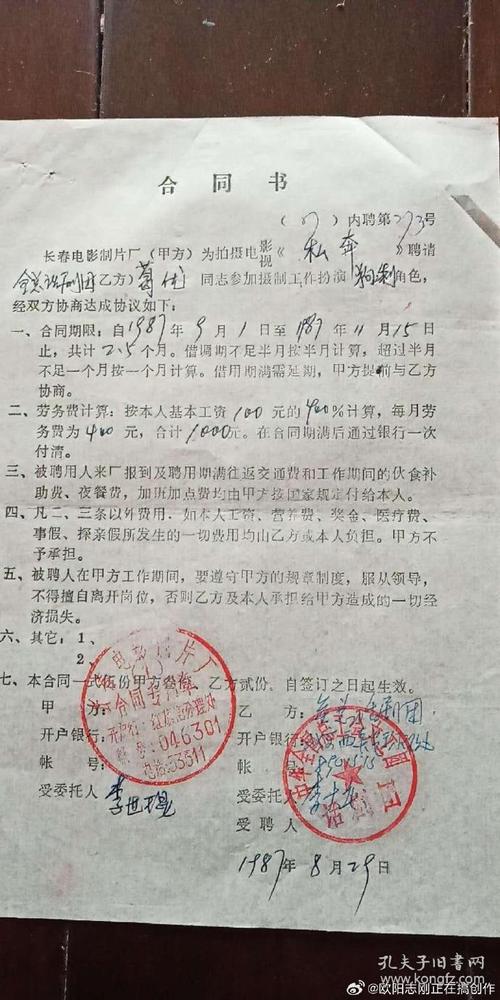 合同书
(87)内聘第273号
长春电影制片厂(甲方)为拍摄电影视《私奔》聘请
全总话剧团(乙方)葛优同志参加摄制工作扮演狗剩角色,
经双方协商达成协议如下:
一、合同期限:自1987年9月1日至1987年11月15日
止,共计2.5个月。借调期不足半月按半月计算,超过半月
不足一个月按一个月计算。借用期满需延期,甲方提前与乙方
协商。
二、劳务费计算:按本人基本工资100元的400%计算,每月劳
务费为400元,合计1000元。在合同期满后通过银行一次
付清。
三、被聘用人来厂报到及聘用期满往返交通费和工作期间的伙食补
助费、夜餐费,加班加点费均由甲方按国家规定付给本人。
四、凡二、三条以外费用,如本人工资、营养费、奖金、医疗费、
事假、探亲假所发生的一切费用均由乙方或本人负担。甲方不
予承担。
五、被聘人在甲方工作期间,要遵守甲方的规章制度,服从领导,
不得擅自离开岗位,否则乙方及本人承担给甲方造成的一切经
济损失。
六、其它:1、
2、
七、本合同一式伍份甲方叁份,乙方贰份,自签订之日起生效。
甲方:
乙方:全总话剧团
开户银行:
开户银行:
帐号:
帐号:
受委托人
受委托人
受聘人
电影制片厂
合同专用章
046301
电话:53311
话剧团
1987年8月29日
孔夫子旧书网
@欧阳志刚正在搞创作